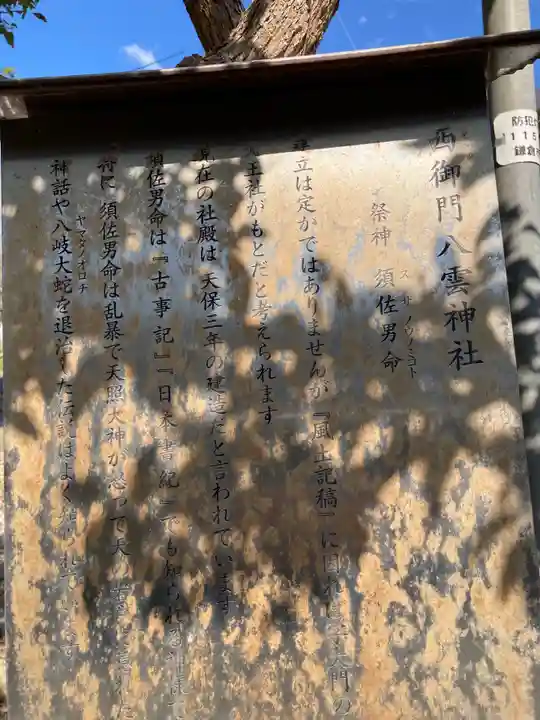 西御門八雲神社
祭神 須佐男命
スサノウノミコト
建立は定かではありませんが『風土記稿』に因れば大門の
土社がもとだと考えられます
現在の社殿は 天保三年の建造だと言われています
須佐男命は『古事記』『日本書紀』でも知られる
特に 須佐男命は乱暴で天照大神が怒って天の
神話や八岐大蛇を退治した伝説はよく知られています
ヤマタノオロチ
防犯
115
鎌倉